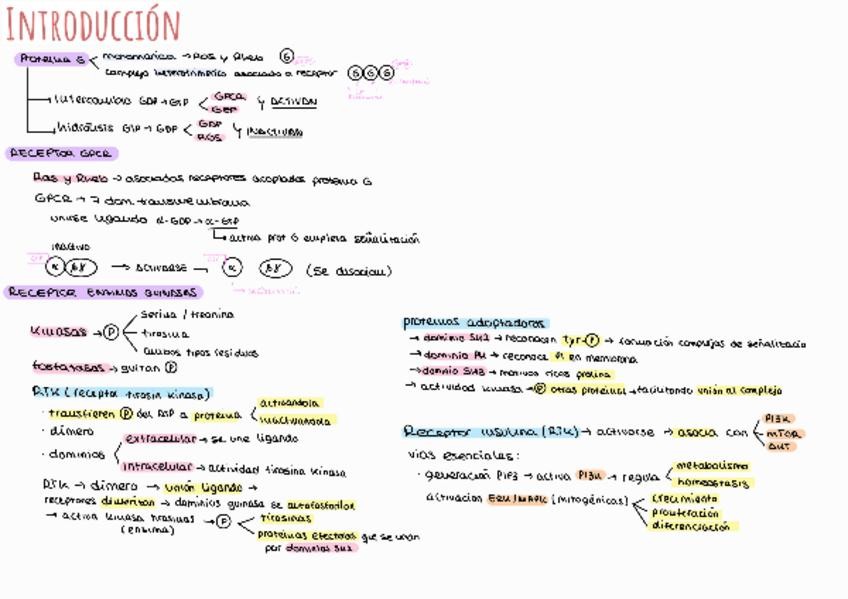 INTRODUCCIÓN
Proteína G
monomérica → RAS y Rheb G
complejo heterotrimérico asociado a receptor G G G
Intercambio GDP → GTP GPCR GEF y ACTIVAN
hidrólisis GTP → GDP GAP RGS y INACTIVAN
RECEPTOR GPCR
Ras y Rheb → asociadas receptores acoplados proteína G
GPCR → 7 dom. transmembrana
unirse ligando α-GDP → α-GTP
activa prot G empieza señalización
inactivo
α βγ → ACTIVARSE α βγ (se disocian)
RECEPTOR ENZIMAS QUINASAS
Kinasas → P
serina / treonina
tirosina
ambos tipos residuos
fosfatasas → quitan P
RTK (receptor tirosin kinasa)
· transfieren P del ATP a proteína
activandola
inactivandola
· dímero
· dominios
extracelular → se une ligando
intracelular → actividad tirosina kinasa
RTK → dímero → unión ligando →
receptores dimerizan → dominios quinasa se autofosforilan
→ activa kinasa tirosinas (enzima) → P
tirosinas
proteínas efectoras que se unen
por dominios SH2
proteínas adaptadoras
→ dominio SH2 → reconocen Tyr-P → formación complejos de señalización
→ dominio PH → reconoce PI en membrana
→ dominio SH3 → motivos ricos prolina
→ actividad kinasa → P otras proteínas → facilitando unión al complejo
Receptor insulina (RTK) → activarse → asocia con
PI3K
mTOR
AKT
vías esenciales:
· generación PIP3 → activa PI3K → regula
metabolismo
homeostasis
activación ERK/MAPK (mitogénicas)
crecimiento
proliferación
diferenciación